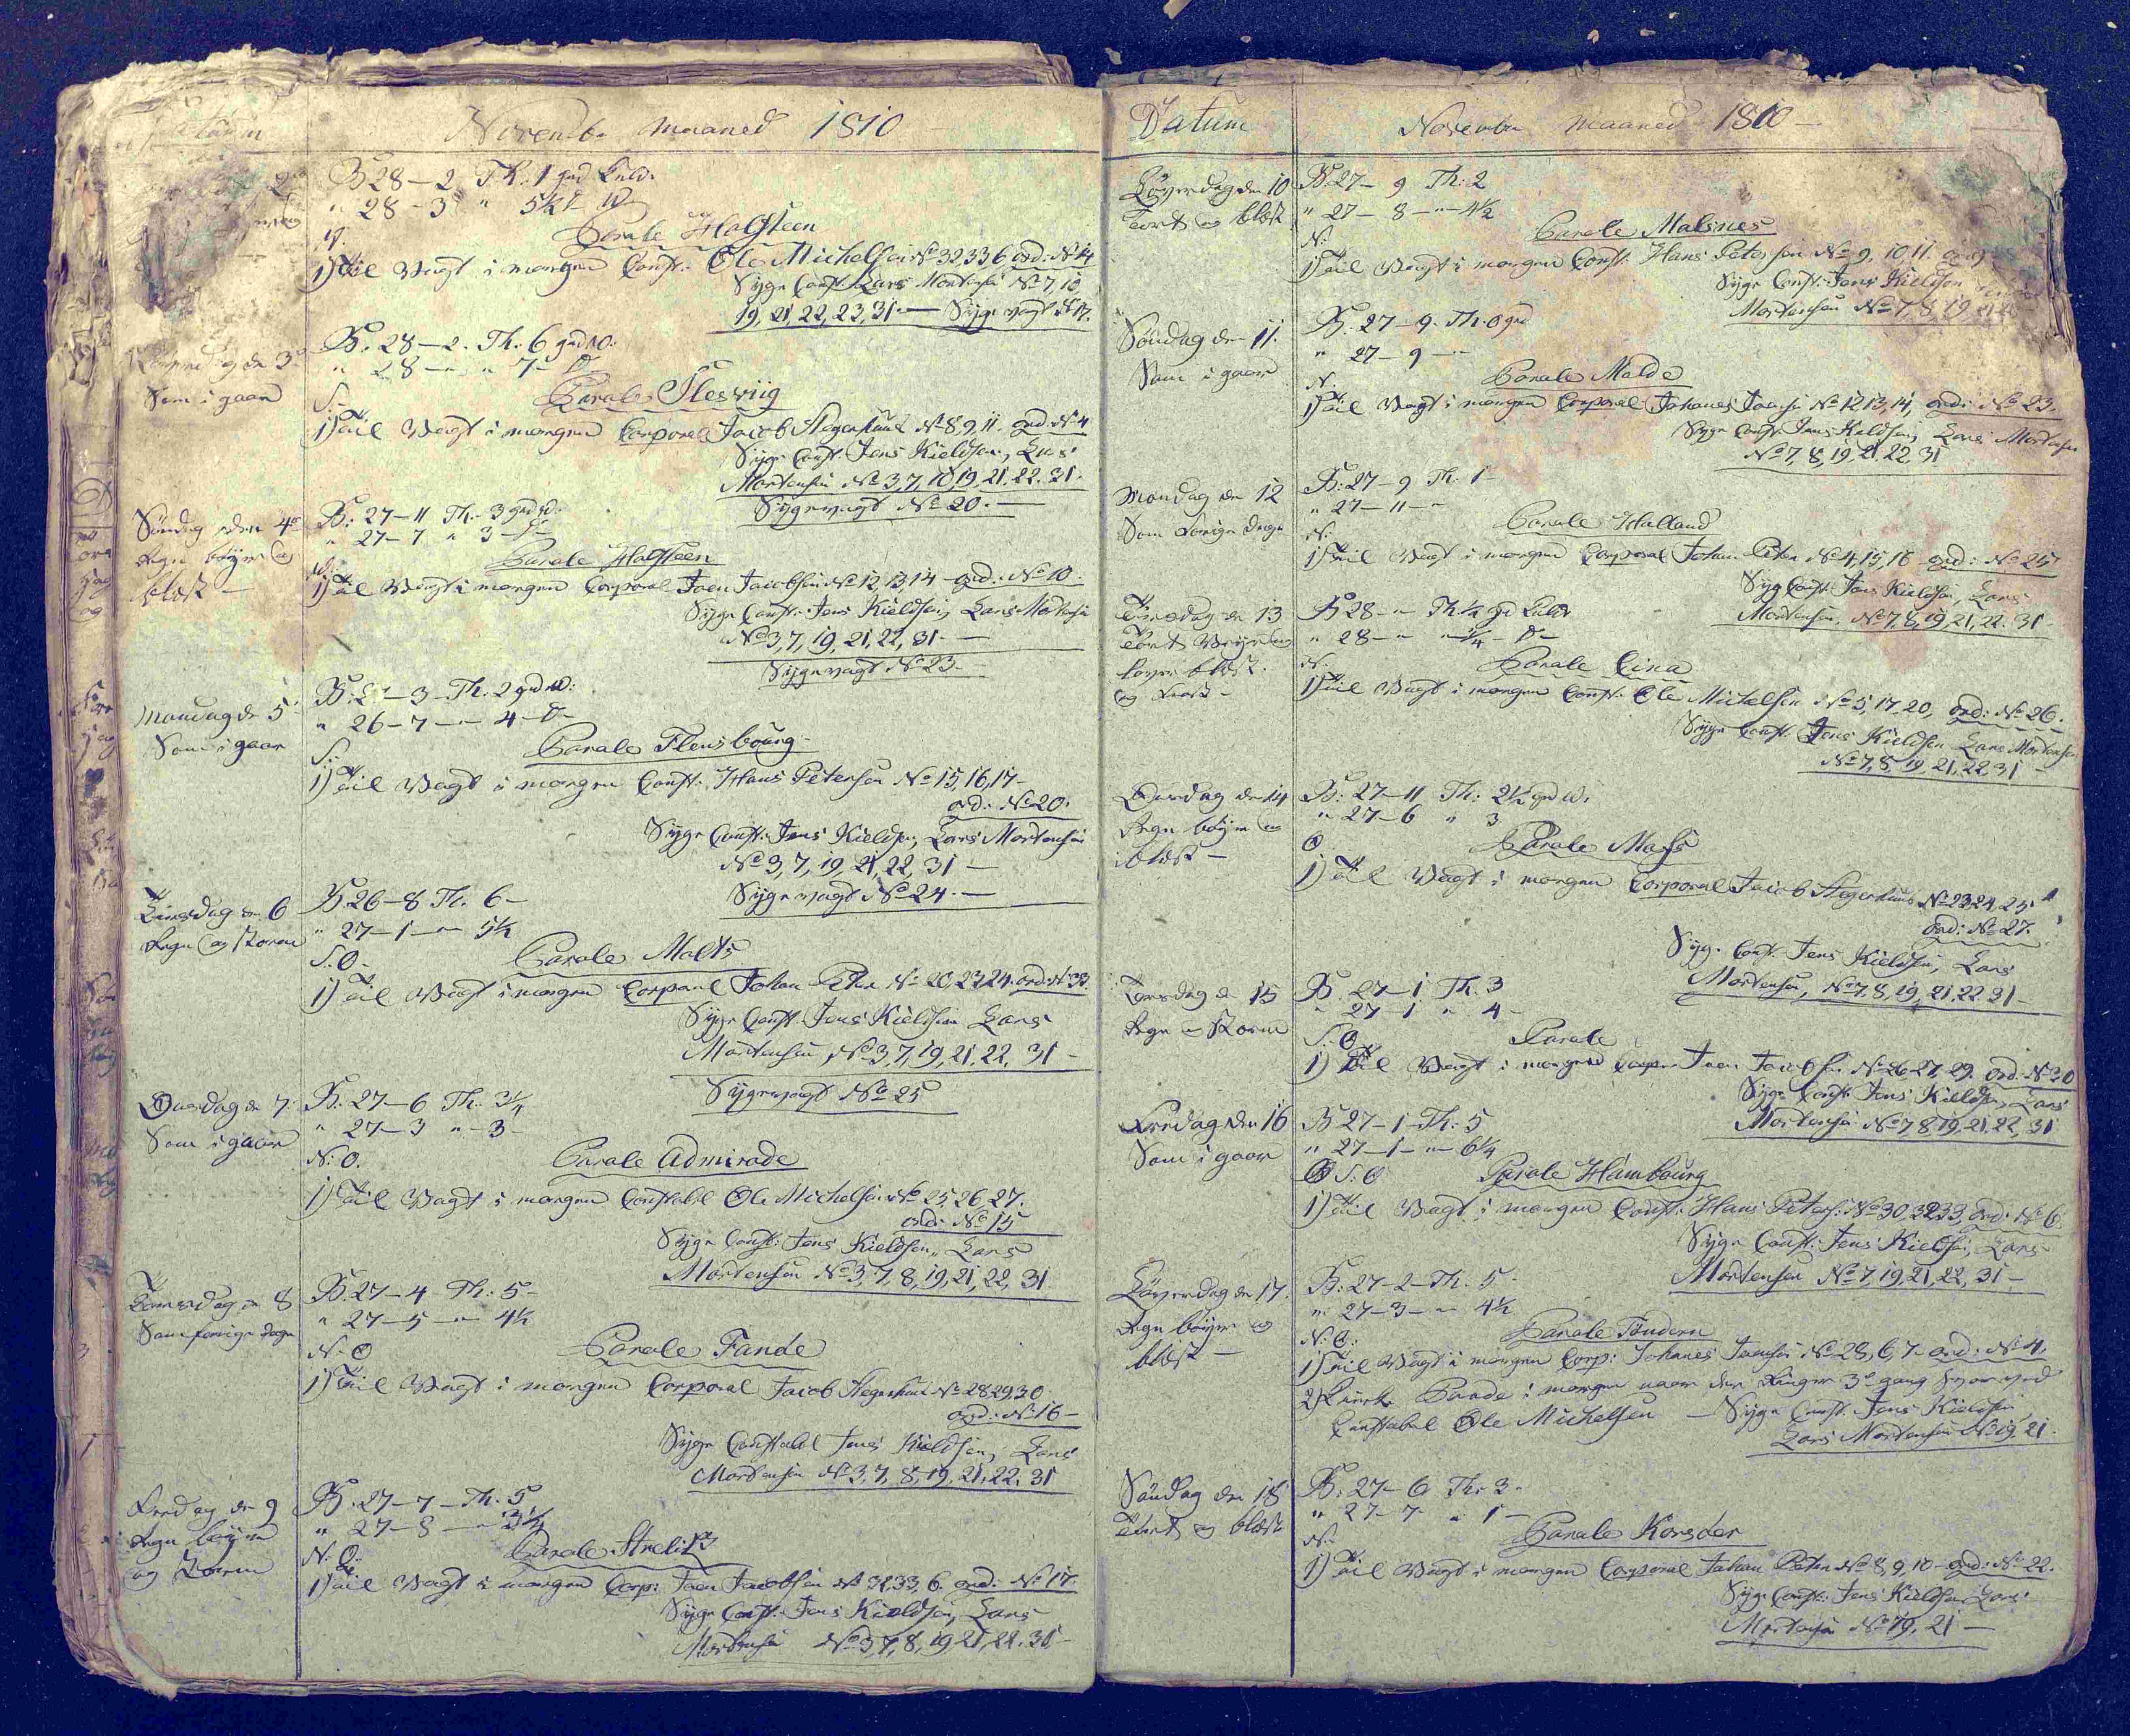 November Maaned 1810
B 28 – 2 Th: 1 grd Kuld.
" 28 – 3 " 5½
Parole Holsteen
1) Til Vagt i morgen Const: Ole Michelsen No 32 33 6 ord: No 14
Syge Const. Lars Mortensen No 7, 10
19, 21, 22, 23, 31 — Syge vagt No 17.
Løverdag den 3
B: 28 – 2. Th: 6 grd
" 28 – " 7 –
Som i gaar
Parole Slesviig
1) Til Vagt i morgen Corporal Jacob No 8 9, 11. ord: No 4
Syge Const. Jens Kieldsen, Lars
Mortensen No 3, 7, 10, 19, 21, 22. 31.
Sygevagt No 20. —
Søndag den 4
B: 27 – 11 Th: 3 grd
Regn bøyer og
" 27 – 7 " 3
blæst —
Parole Holsteen
1) Til Vagt i morgen Corporal Joen Jacobsen No 12, 13, 14 – ord: No 10.
Syge Const: Jens Kieldsen, Lars Mortensen
No 3, 7, 19, 21, 22, 31 —
Sygevagt No 23 —
Mandag de 5
B: – 3 – Th: 2 grd
Som i gaar
" 26 – 7 – " 4
S:
Parole Flensbourg
1) Til Vagt i morgen Const: Hans Petersen No 15, 16, 17 –
ord: No 20.
Syge Const: Jens Kieldsen, Lars Mortensen
No 3, 7, 19, 21, 22, 31 —
Sygevagt No 24. —
Tirsdag de 6
B. 26 – 8 Th. 6 –
Regn og Storm
" 27 – 1 – " 5½
S: O –
Parole Malts
1) Til Vagt i morgen Corporal Johan Peter No 20, 23 24. ord: No 33
Syge Const. Jens Kieldsen Lars
Mortensen, No 3, 7, 19, 21, 22, 31 –
Sygevagt No 25
Onsdag de 7
B: 27 – 6 Th: 3¼
Som i gaar
" 27 – 3 " – 3 –
N: O.
Parole Admirade
1) Til Vagt i morgen Constabel Ole Michelsen No 25, 26, 27.
ord: No 15
Syge Const: Jens Kieldsen, Lars
Mortensen No 3, 7, 8, 19, 21, 22, 31.
Torsdag de 8
B. 27 – 4 Th: 5 –
Som forige dage
" 27 – 5 – " 4½
N: O
Parole Fande
1) Til Vagt i morgen Corporal Jacob No 28 29, 30.
ord: No 16 –
Syge Constabel Jens Kieldsen, Lars
Mortensen No 3, 7, 8, 19, 21, 22, 31
Fredag de 9
B. 27 – 7 – Th: 5
Regn bøyer
" 27 – 8 – " 3½
og Storm
N: O.
Parole Strelitz
1) Til Vagt i morgen Corp: Joen Jacobsen No 32, 33, 6. ord: No 17.
Syge Const. Jens Kieldsen, Lars
Mortensen No 3, 7, 8, 19, 21, 22. 31 –
Datum
November Maaned 1810 —
Løverdag den 10
B. 27 – 9 Th: 2
Tørt og blæst
" 27 – 8 – " – 4½
N:
Parole Malsines
1) Til Vagt i morgen Const. Hans Petersen No 9, 10, 11.
Syge Const: Jens Kieldsen
Mortensen No 7, 8, 19
Søndag den 11.
B: 27 – 9. Th: 0 grd
Som i gaar
" 27 – 9 – "
N.
Parole Molde
1) Til Vagt i morgen Corporal Johanes No 12 13, 14, ord: No 23.
Syge Const. Jens Kieldsen, Lars Mortensen
No 7, 8, 19, 21, 22, 31
Mandag den 12
B: 27 – 9 Th. 1 –
Som forige dage
" 27 – 11 – "
N:
Parole Halland
1) Til Vagt i morgen Corporal Johan Peter No 4, 15, 16 ord: No 25
Syge Const: Jens Kieldsen, Lars
Mortensen, No 7, 8, 19, 21, 22. 31 –
Tirsdag de 13
B 28 – " Th ¼ gr Kulde
" 28 – " – " ¼
N.
Parole Cina
1) Til Vagt i morgen Const. Ole Michelsen No 5, 17, 20, ord: No 26.
Syge Const. Jens Kieldsen Lars Mortensen
No 7, 8, 19, 21, 22, 31 –
Onsdag den 14
B: 27 – 11 Th: 2½ grd
Regn bøyer og
" 27 – 6 " 3
blæst —
O
Parole Mass
1) Til Vagt i morgen Corporal Jacob No 23 24, 25
ord: No 27.
Syge Const. Jens Kieldsen, Lars
Mortensen, No 7, 8, 19, 21, 22. 31 –
Torsdag d 15
B. 27 – 1 Th. 3
Regn og Storm
" 27 – 1 " 4 –
S: O
Parole
1) Til Vagt i morgen Corpor Joen Jacobsen No 26, 27, 29. ord: No 10
Syge Const. Jens Kieldsen, Lars
Mortensen No 7 8, 19, 21, 22, 31
Fredag den 16
B 27 – 1 – Th: 5
Som i gaar
" 27 – 1 – " 6¼
S: O
Parole Hambourg
1) Til Vagt i morgen Const: Hans Peters: No 30, 32 33, ord: No 6.
Syge Const: Jens Kieldsen, Lars
Mortensen No 7, 19, 21, 22, 31 –
Løverdag den 17.
B: 27 – 2 – Th. 5 –
Regn bøyer og
" 27 – 3 – " 4½
blæst —
N: O.
Parole Tøndern
1) Til Vagt i morgen Corp: Johanes No 28, 6, 7 – ord: No 4.
2) Kirke Parade i morgen naar der Ringer 3de gang
Constabel Ole Michelsen — Syge Const. Jens Kieldsen
Lars Mortensen No 19, 21.
Søndag den 18
B: 27 – 6 Th: 3 –
Tørt og blæst
" 27 – 7 – " 1 –
N.
Parole Korsøer
1) Til Vagt i morgen Corporal Johan Peter No 8, 9, 10 – ord: No 22.
Syge Const: Jens Kieldsen Lars
Mortensen No 19, 21 —